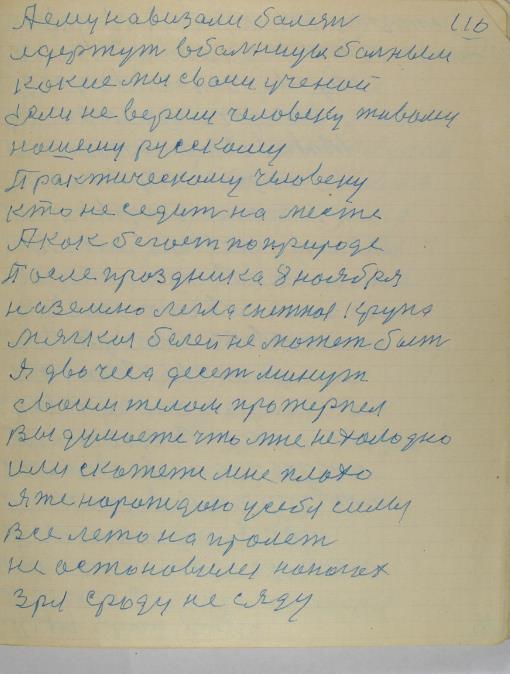 116
А ему навизали балят
идержут вбалницы балным
Какие мы свами ученой
Если не верим человеку живому
нашему русскому
Практическому человеку
кто не седит на месте
А как бегает поприроде
После праздника 8 ноября
наземлю легла снежная крупа
мягкая белей не может быт
Я два часа десет минут
своим телом протерпел
вы думаете что мне не холодно
или скажете мне плохо
я же нарождаю усебя силы
все лето на пролет
не остановился наногах
зря сроду не сяду